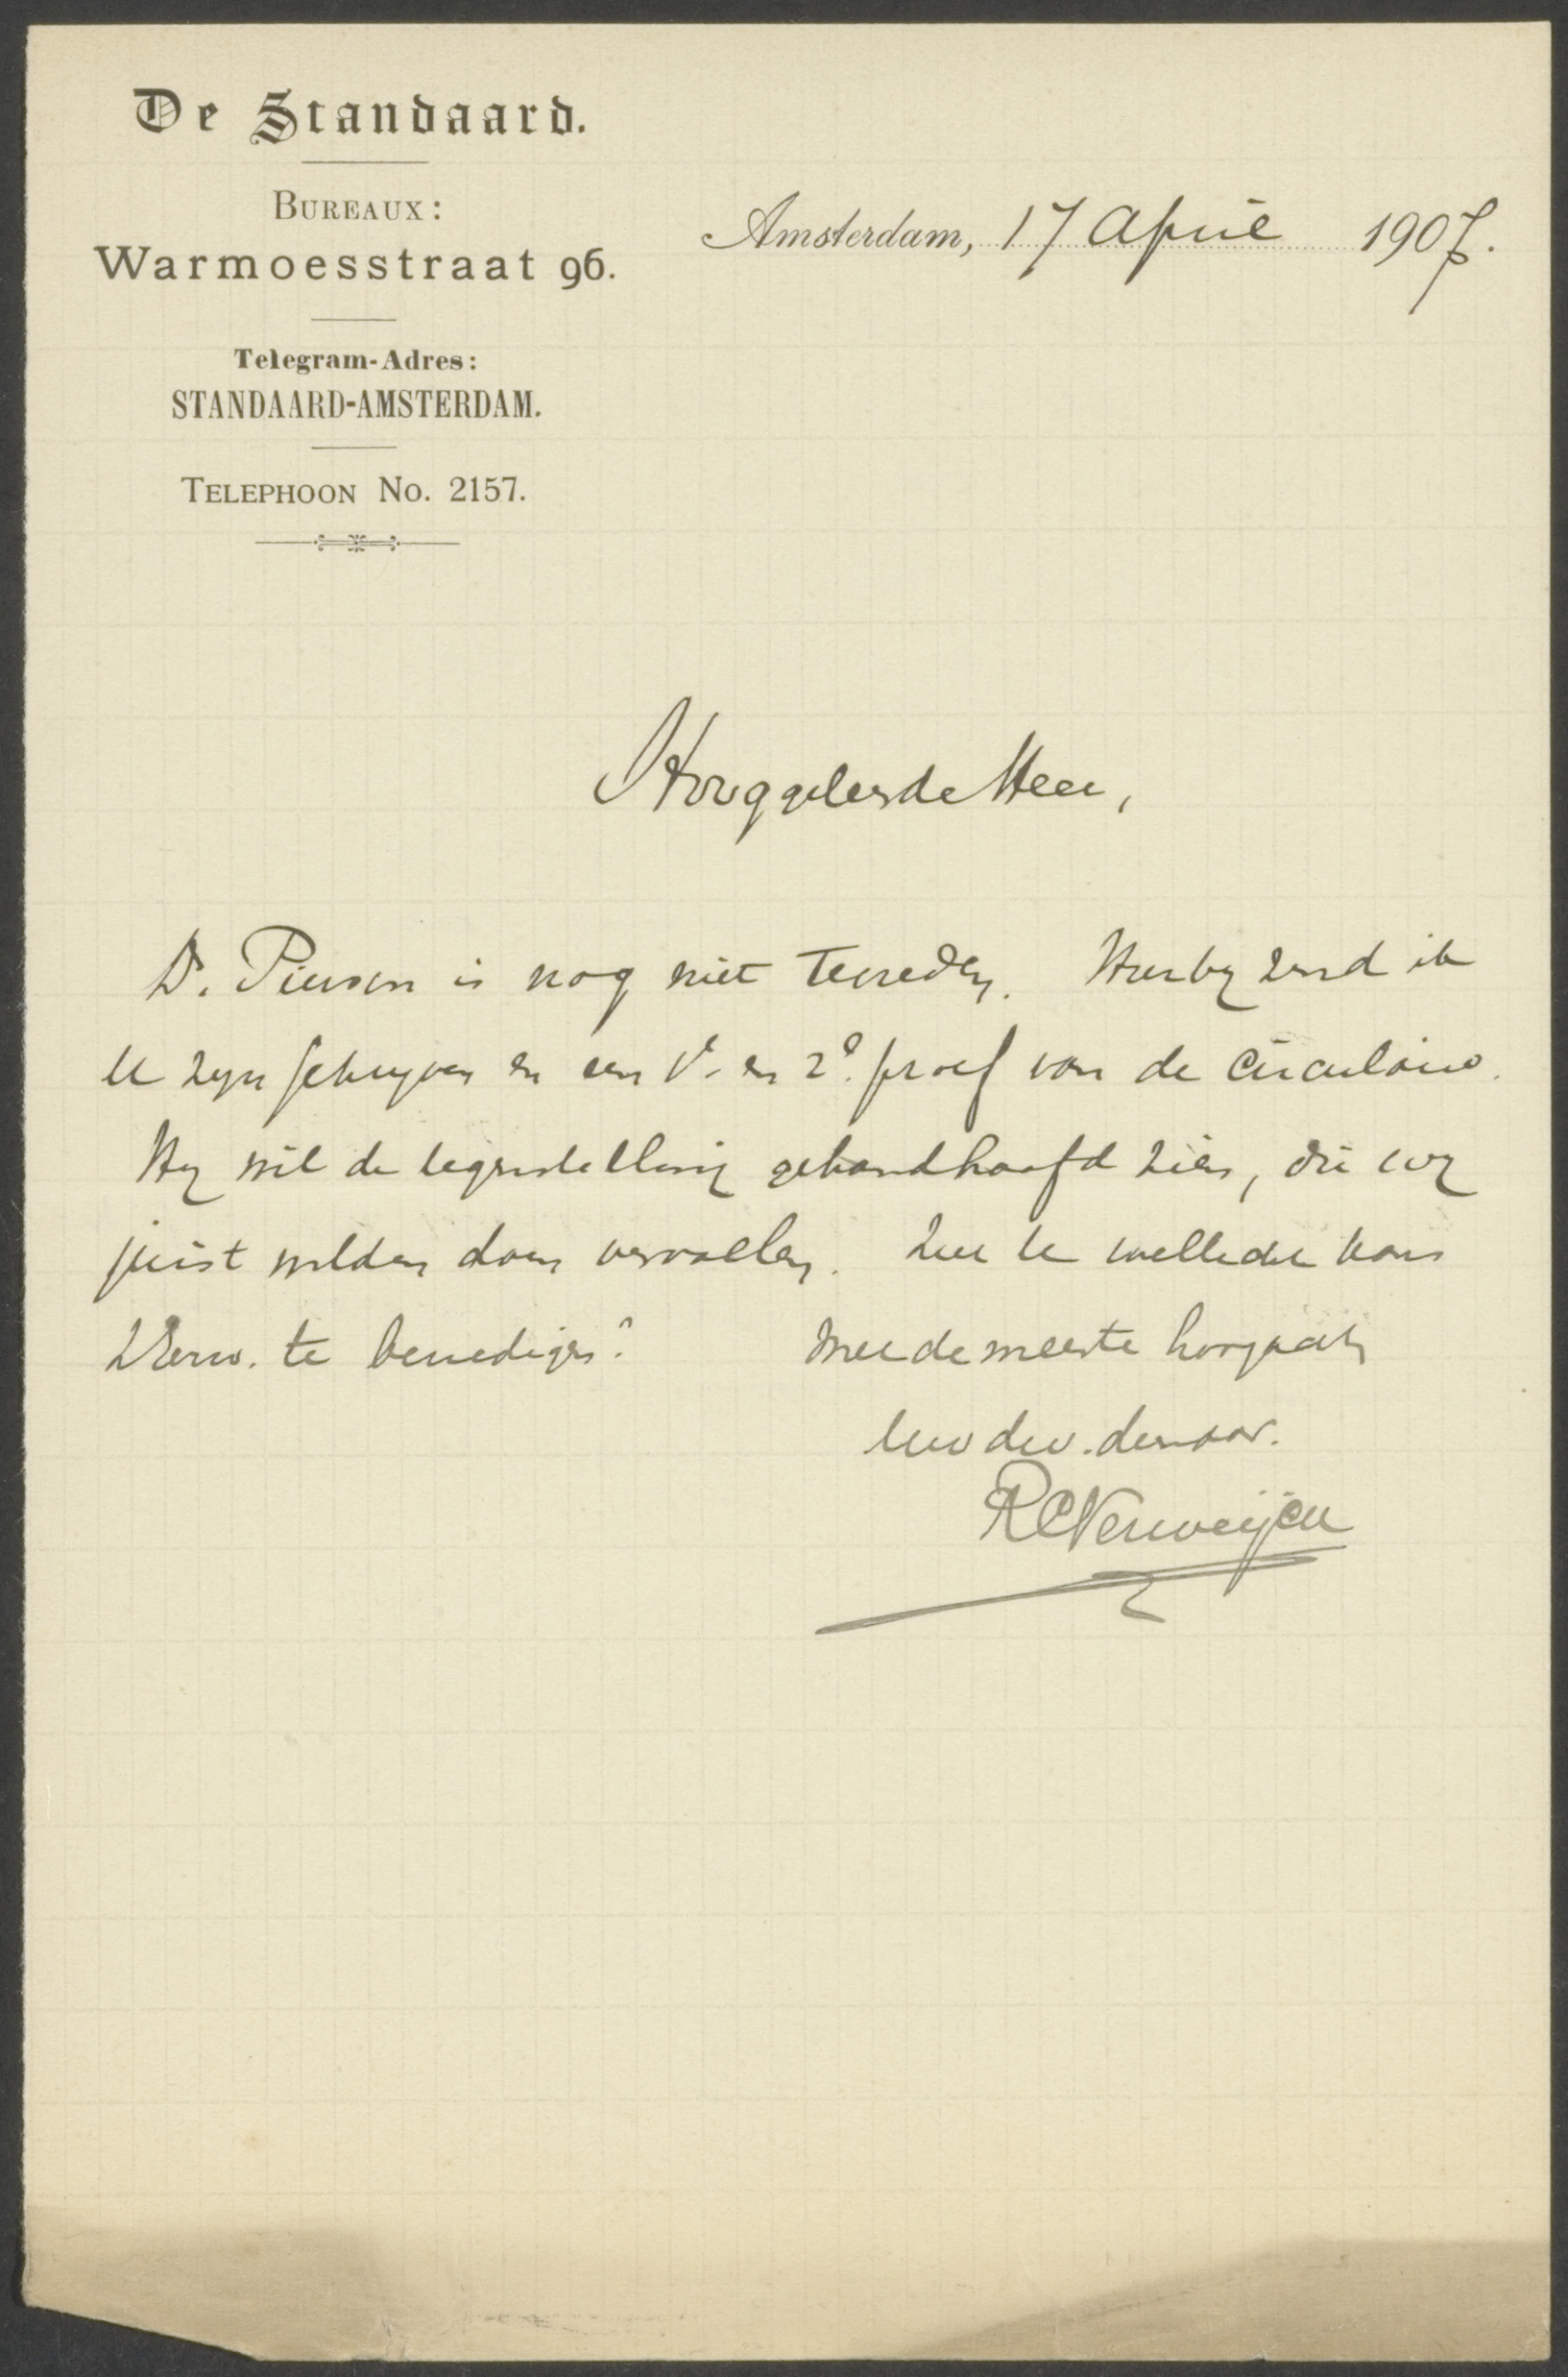 De Standaard.
BUREAUX:
Warmoesstraat 96.
Telegram-Adres:
STANDAARD-AMSTERDAM.
TELEPHOON No. 2157.
Amsterdam, 17 April 1907.
Hooggeleerde Heer,
Dr. Pierson is nog niet tevreden. Hierbij zend ik
U zijn schrijven en een 1e. en 2e. proef van de circulaire.
Hij wil de tegenstelling gehandhaafd zien, die wij
juist wilden doen vervallen. Zou U wellicht kans
te bevredigen?
Met de meeste hoogacht
Uw dw. dienaar.
RCVerweijen